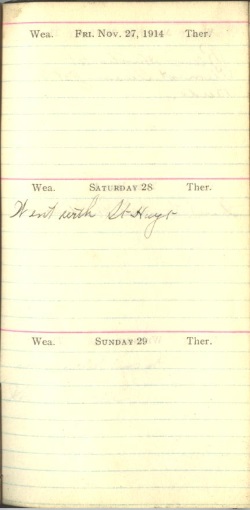 Wea. FRI. NOV. 27, 1914 Ther.
Wea. SATURDAY 28 Ther.
Went with
Wea. SUNDAY 29 Ther.